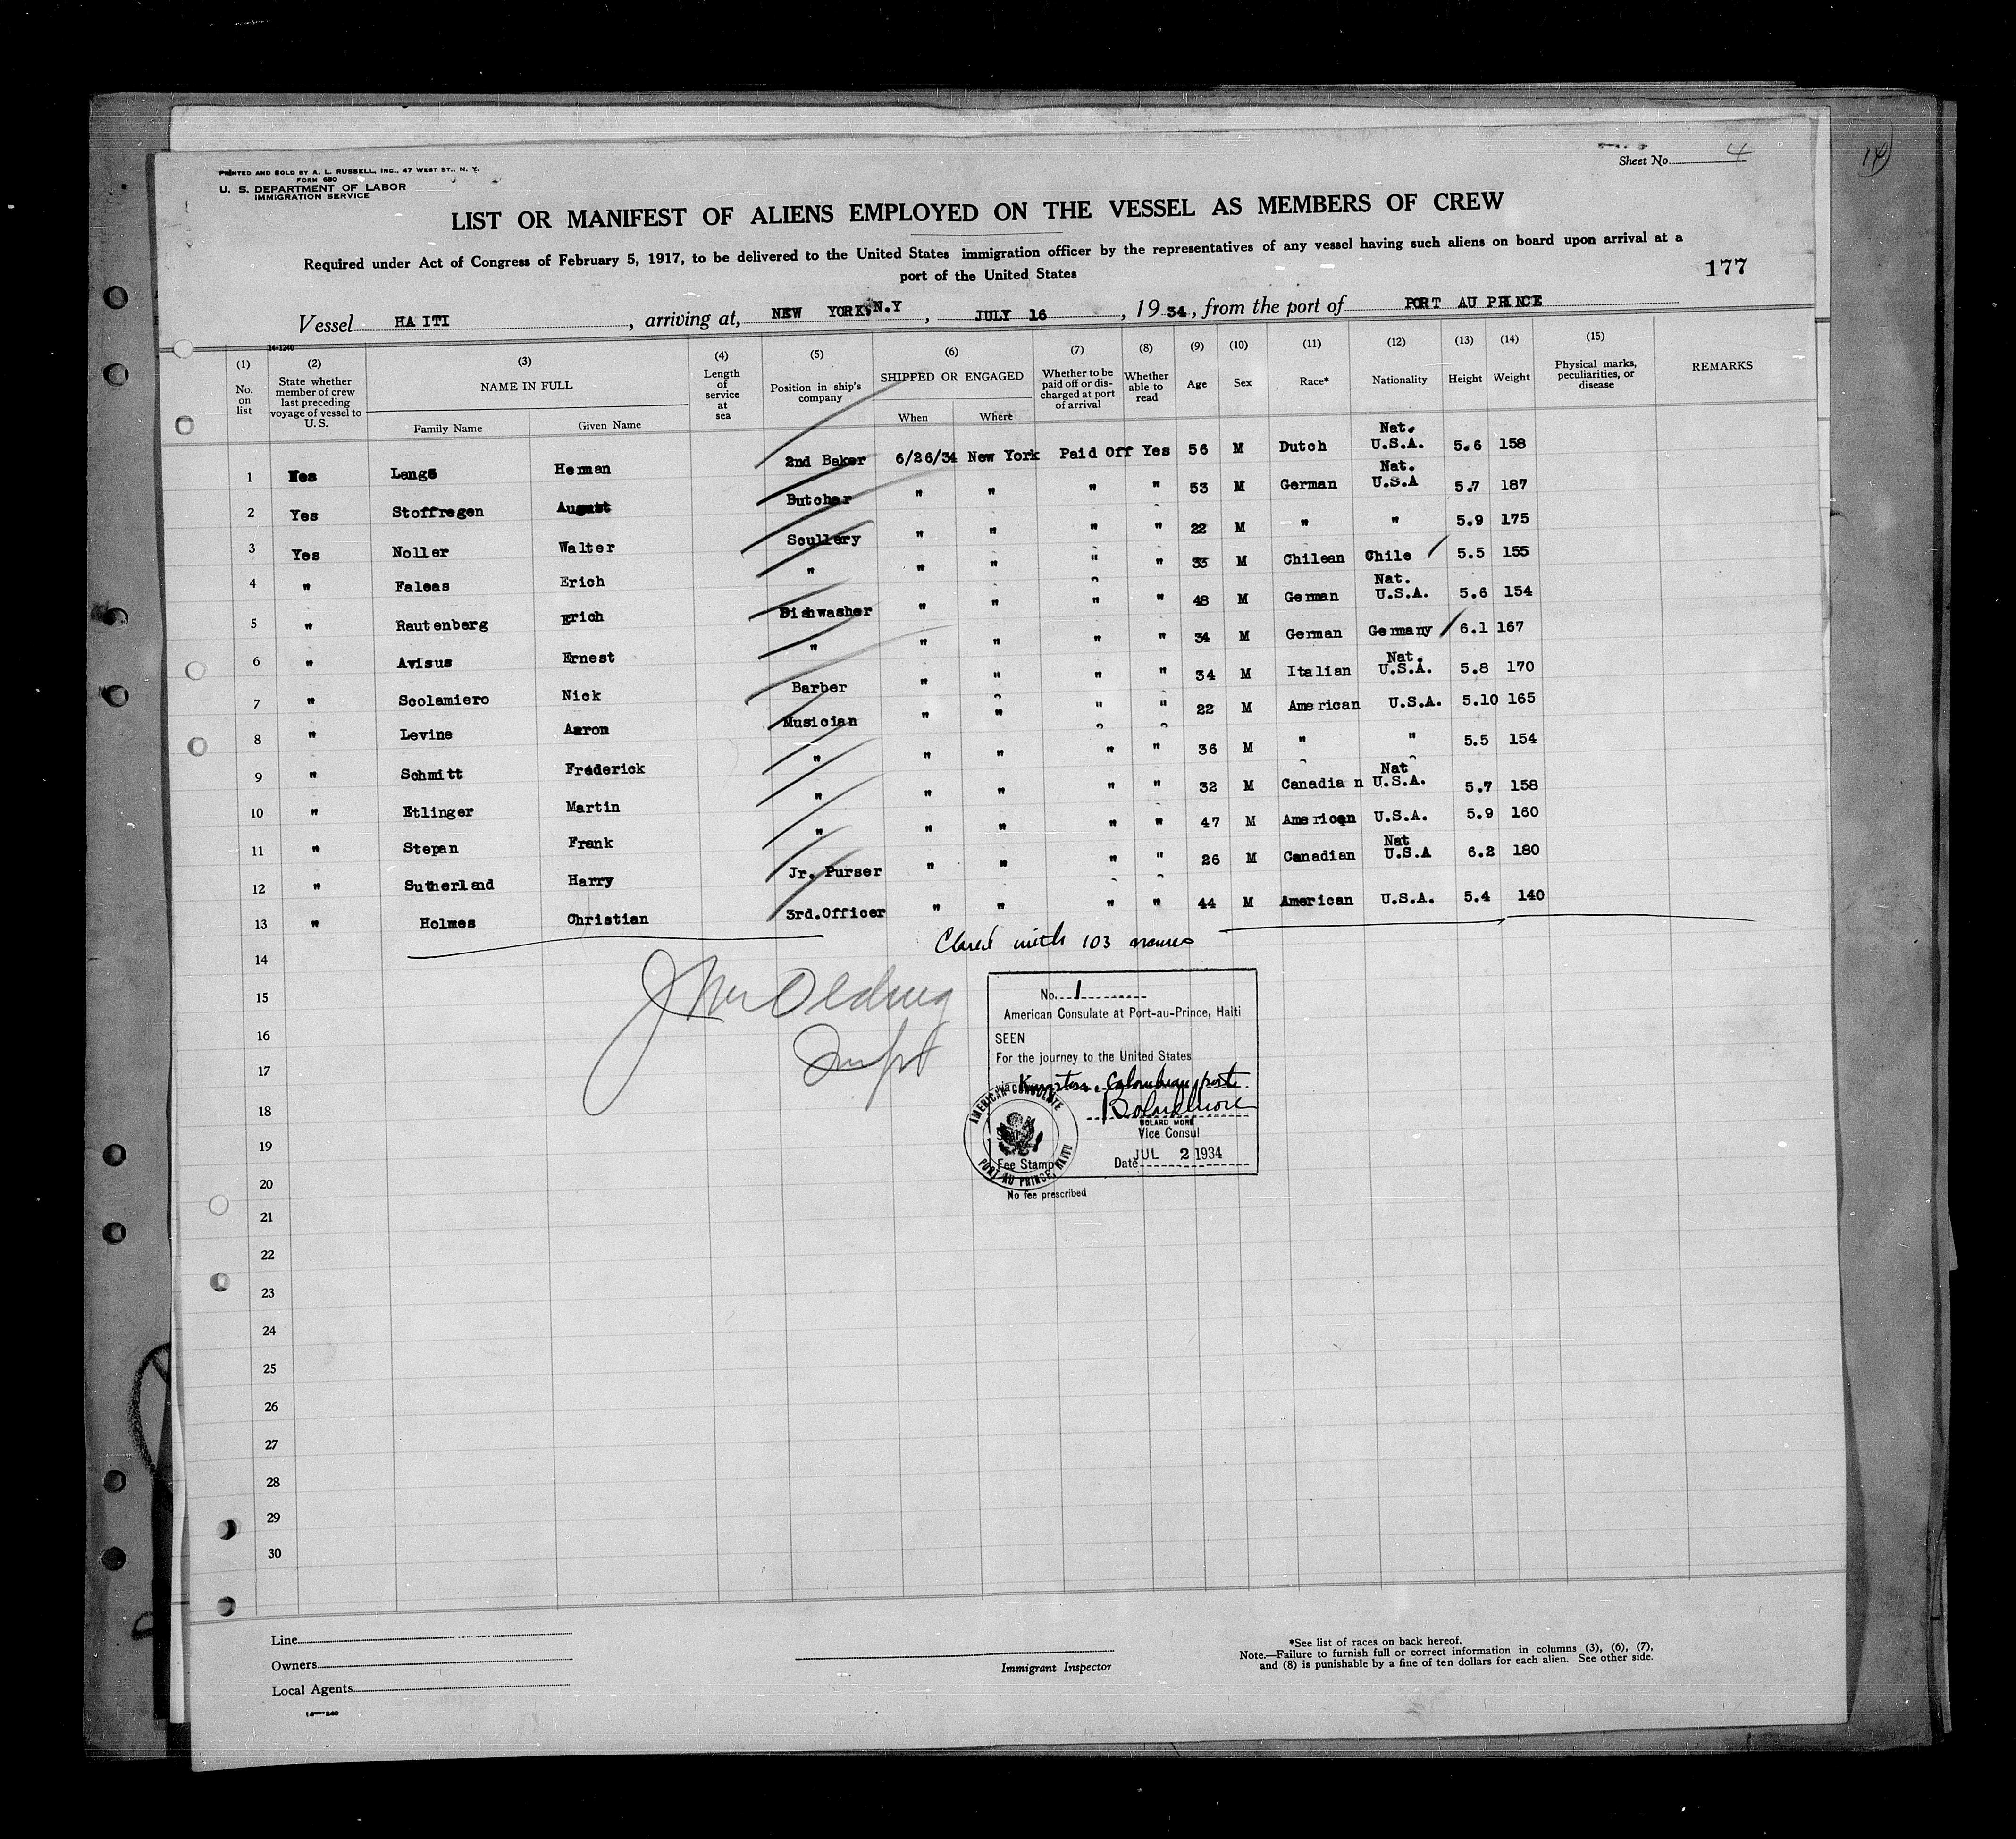 Sheet No. 4
14
PRINTED AND SOLD BY A. L. RUSSELL, INC., 47 WEST ST., N. Y.
FORM 680
U. S. DEPARTMENT OF LABOR
IMMIGRATION SERVICE
LIST OR MANIFEST OF ALIENS EMPLOYED ON THE VESSEL AS MEMBERS OF CREW
Required under Act of Congress of February 5, 1917, to be delivered to the United States immigration officer by the representatives of any vessel having such aliens on board upon arrival at a
port of the United States
177
Vessel HAITI, arriving at, NEW YORK,N.Y, JULY 16, 1934, from the port of PORT AU PRINCE
14-1240
(1) (2) (3) (4) (5) (6) (7) (8) (9) (10) (11) (12) (13) (14) (15)
No. on list State whether member of crew last preceding voyage of vessel to U. S. NAME IN FULL Length of service at sea Position in ship's company SHIPPED OR ENGAGED Whether to be paid off or discharged at port of arrival Whether able to read Age Sex Race* Nationality Height Weight Physical marks, peculiarities, or disease REMARKS
Family Name Given Name When Where
1 Yes Lange Herman 2nd Baker 6/26/34 New York Paid Off Yes 56 M Dutch Nat. U.S.A. 5.6 158
2 Yes Stoffregen August Butcher " " " " 53 M German Nat. U.S.A 5.7 187
3 Yes Noller Walter Scullery " " " " 22 M " " 5.9 175
4 " Faleas Erich " " " " " 33 M Chilean Chile 5.5 155
5 " Rautenberg Erich Dishwasher " " " " 48 M German Nat. U.S.A. 5.6 154
6 " Avisus Ernest " " " " " 34 M German Germany 6.1 167
7 " Scolamiero Nick Barber " " " " 34 M Italian Nat. U.S.A. 5.8 170
8 " Levine Aaron Musician " " " " 22 M American U.S.A. 5.10 165
9 " Schmitt Frederick " " " " " 36 M " " 5.5 154
10 " Etlinger Martin " " " " " 32 M Canadian Nat U.S.A. 5.7 158
11 " Stepan Frank " " " " " 47 M American U.S.A. 5.9 160
12 " Sutherland Harry Jr. Purser " " " " 26 M Canadian Nat U.S.A 6.2 180
13 " Holmes Christian 3rd.Officer " " " " 44 M American U.S.A. 5.4 140
Closed with 103 names
14
15
16
17
18
19
20
21
22
23
24
25
26
27
28
29
30
No. 1
American Consulate at Port-au-Prince, Haiti
SEEN
For the journey to the United States
via Kingston & Colombian port
BOLARD MORE
Vice Consul
Date JUL 2 1934
Fee Stamp
AMERICAN CONSULATE
PORT AU PRINCE, HAITI
No fee prescribed
Line
Owners
Local Agents
14-1240
Immigrant Inspector
*See list of races on back hereof.
Note.—Failure to furnish full or correct information in columns (3), (6), (7),
and (8) is punishable by a fine of ten dollars for each alien. See other side.